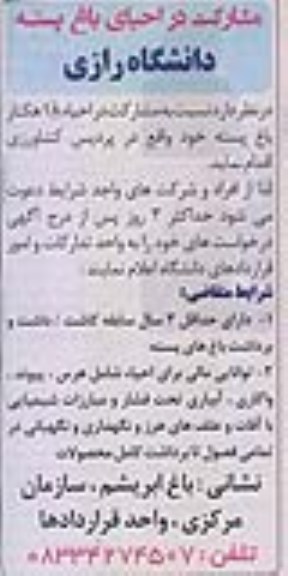 مشارکت در احیای باغ پسته
دانشگاه رازی
در نظر دارد نسبت به مشارکت در احیاء ۱۸ هکتار
باغ پسته خود واقع در پردیس کشاورزی
اقدام نماید.
لذا از افراد و شرکت های واجد شرایط دعوت
می شود حداکثر ۳ روز پس از درج آگهی
درخواست های خود را به واحد تدارکات و امور
قراردادهای دانشگاه اعلام نمایند:
شرایط متقاضی:
۱- دارای حداقل ۳ سال سابقه کاشت / داشت و
برداشت باغ های پسته
۲- توانایی مالی برای احیاء شامل هرس ، پیوند ،
واکاری ، آبیاری تحت فشار و مبارزات شیمیایی
با آفات و علف های هرز و نگهداری و نگهبانی در
تمامی فصول تا برداشت کامل محصولات
نشانی : باغ ابریشم ، سازمان
مرکزی ، واحد قراردادها
تلفن : ۰۸۳۳۴۲۷۴۵۰۷